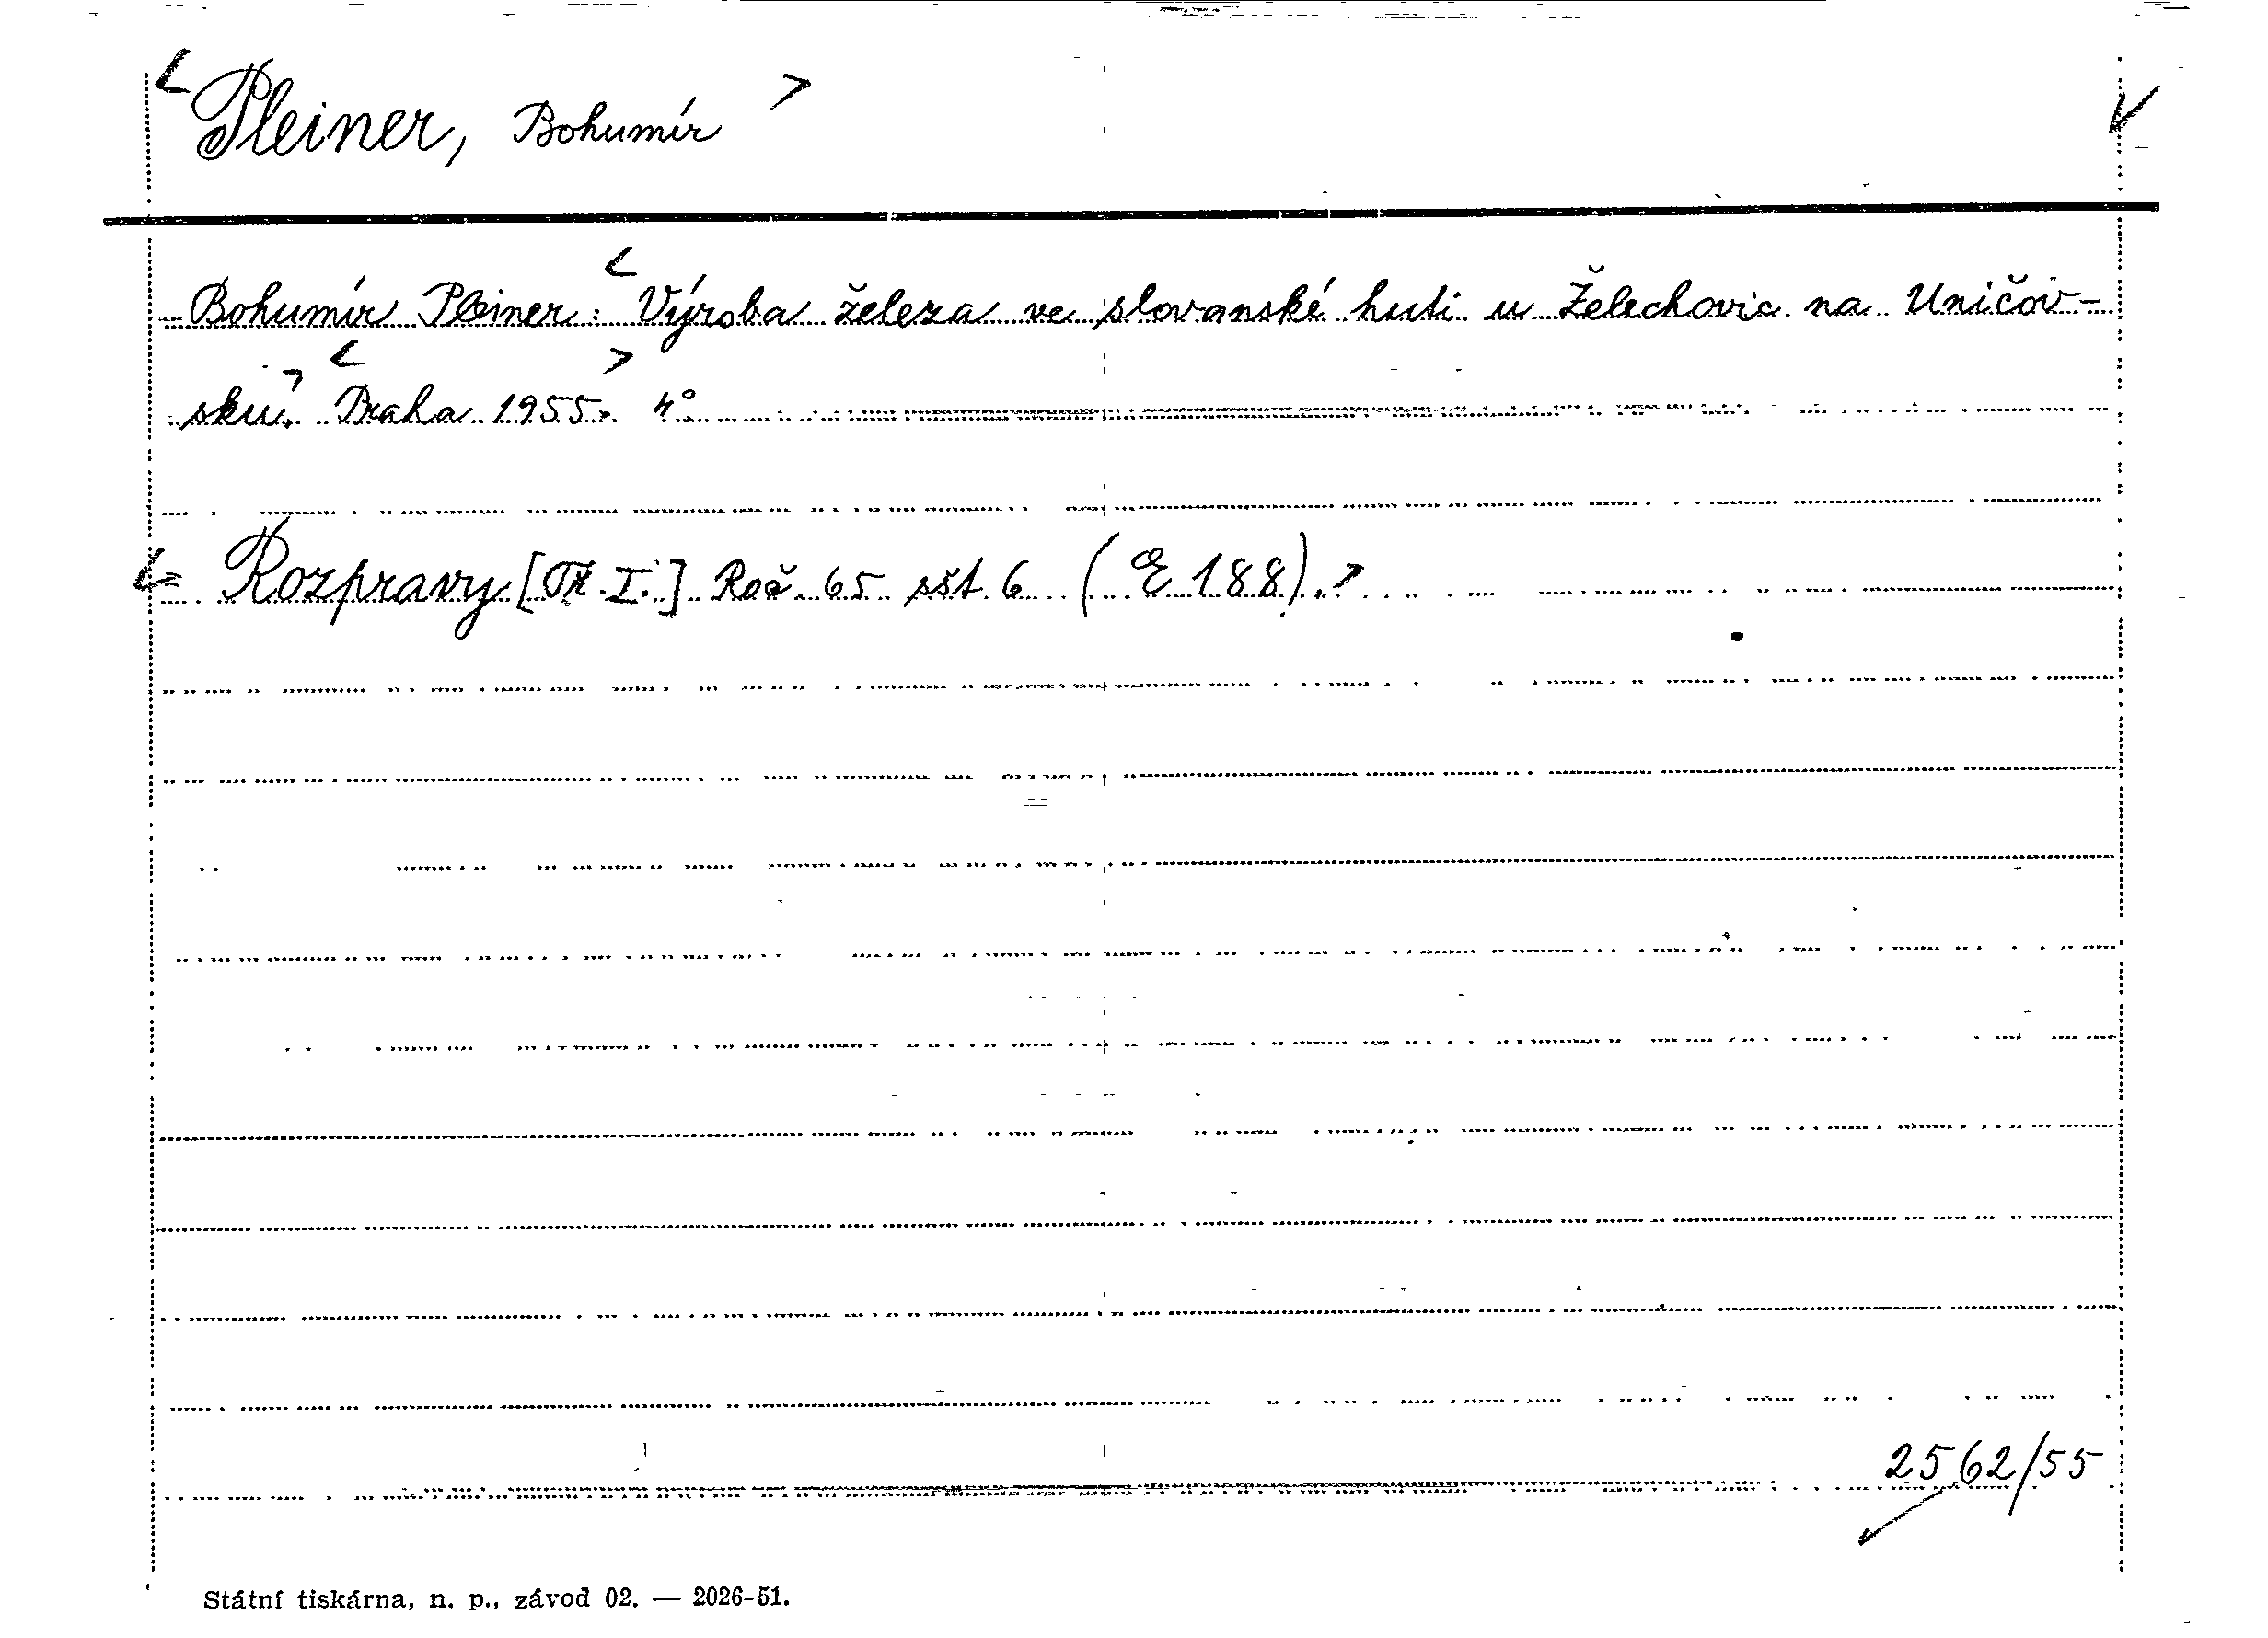 < Pleiner, Bohumír >
Bohumír Pleiner: < Výroba železa ve slovanské huti u Želechovic na Uničov-
sku. > < Praha 1955. > 4°
<= Rozpravy [Tř. I.] Roč. 65 sšt. 6 (E 188). >
2562/55
Státní tiskárna, n. p., závod 02. — 2026-51.